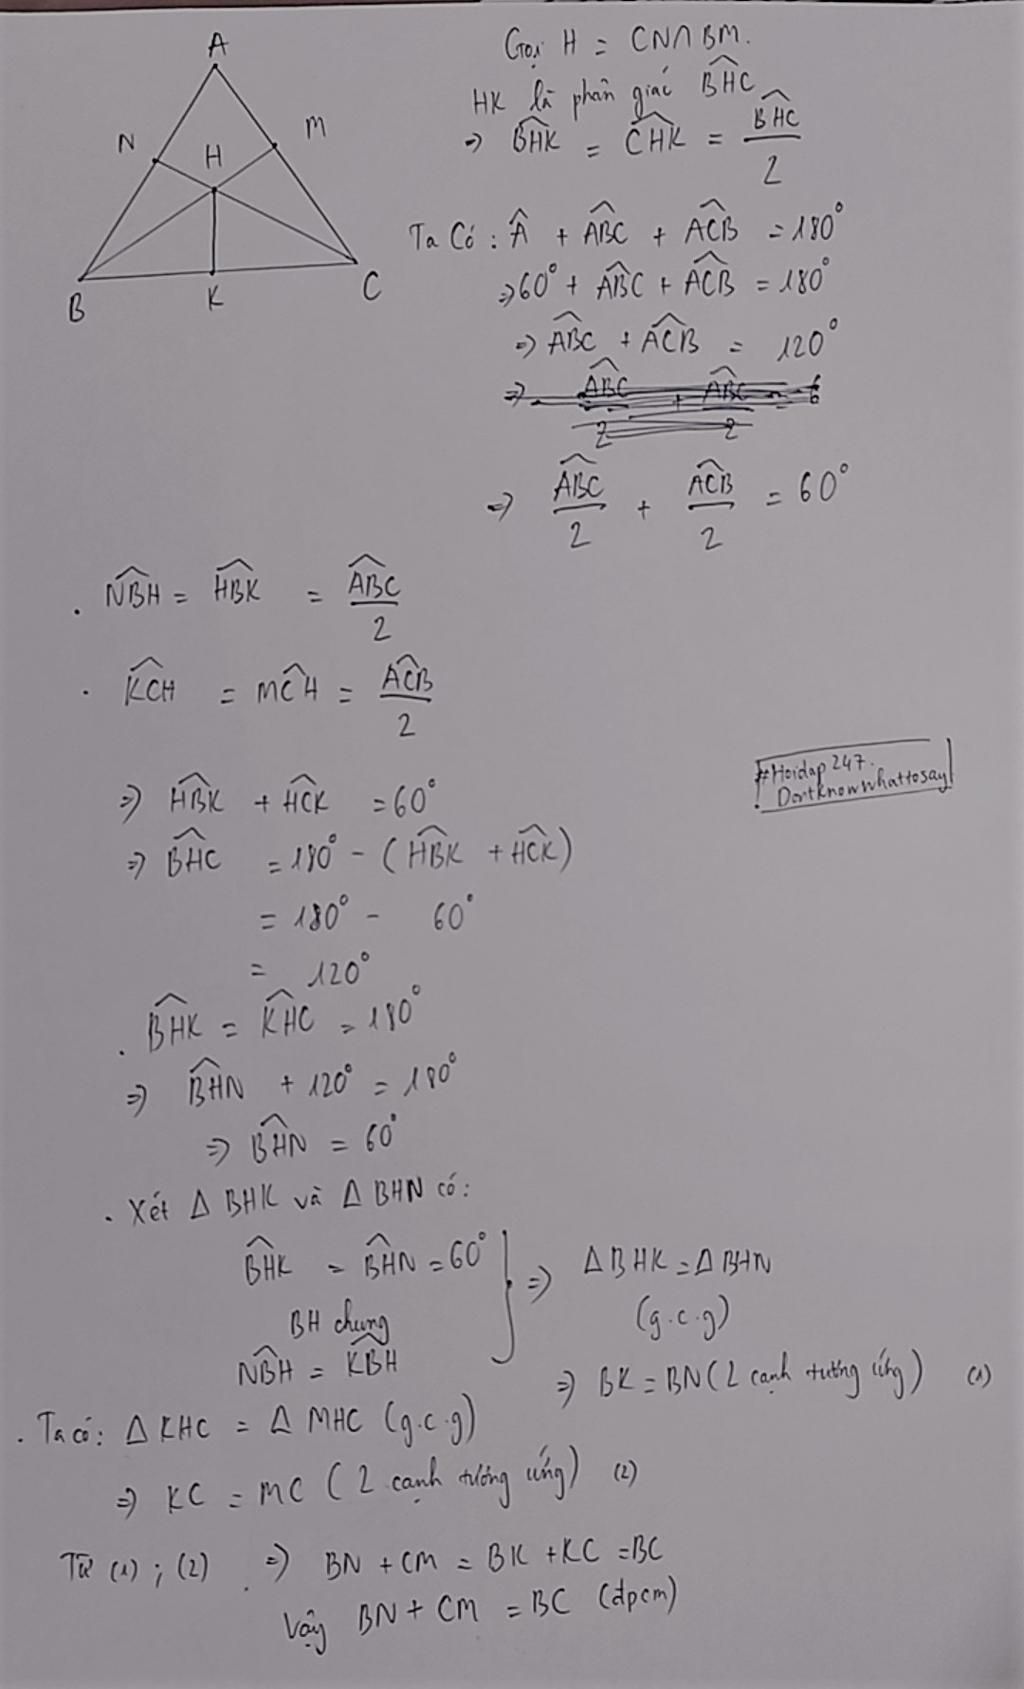 A
N
H
M
B
K
C
Gọi H = CN∩BM.
HK là phân giác \widehat{BHC}
=> \widehat{BHK} = \widehat{CHK} = \frac{\widehat{BHC}}{2}
Ta Có : \widehat{A} + \widehat{ABC} + \widehat{ACB} = 180°
=> 60° + \widehat{ABC} + \widehat{ACB} = 180°
=> \widehat{ABC} + \widehat{ACB} = 120°
=> \frac{\widehat{ABC}}{2} + \frac{\widehat{ACB}}{2} = 60°
. \widehat{NBH} = \widehat{HBK} = \frac{\widehat{ABC}}{2}
. \widehat{KCH} = \widehat{MCH} = \frac{\widehat{ACB}}{2}
=> \widehat{HBK} + \widehat{HCK} = 60°
#Hoidap247.
DontKnowwhattosay
=> \widehat{BHC} = 180° - (\widehat{HBK} + \widehat{HCK})
= 180° - 60°
= 120°
. \widehat{BHK} = \widehat{KHC} = 180°
=> \widehat{BHN} + 120° = 180°
=> \widehat{BHN} = 60°
. Xét Δ BHK và Δ BHN có:
\widehat{BHK} = \widehat{BHN} = 60°
BH chung
\widehat{NBH} = \widehat{KBH}
=> Δ BHK = Δ BHN
(g.c.g)
=> BK = BN (2 cạnh tương ứng) (1)
. Ta có: Δ KHC = Δ MHC (g.c.g)
=> KC = MC (2 cạnh tương ứng) (2)
Từ (1) ; (2) => BN + CM = BK + KC = BC
Vậy BN + CM = BC (đpcm)